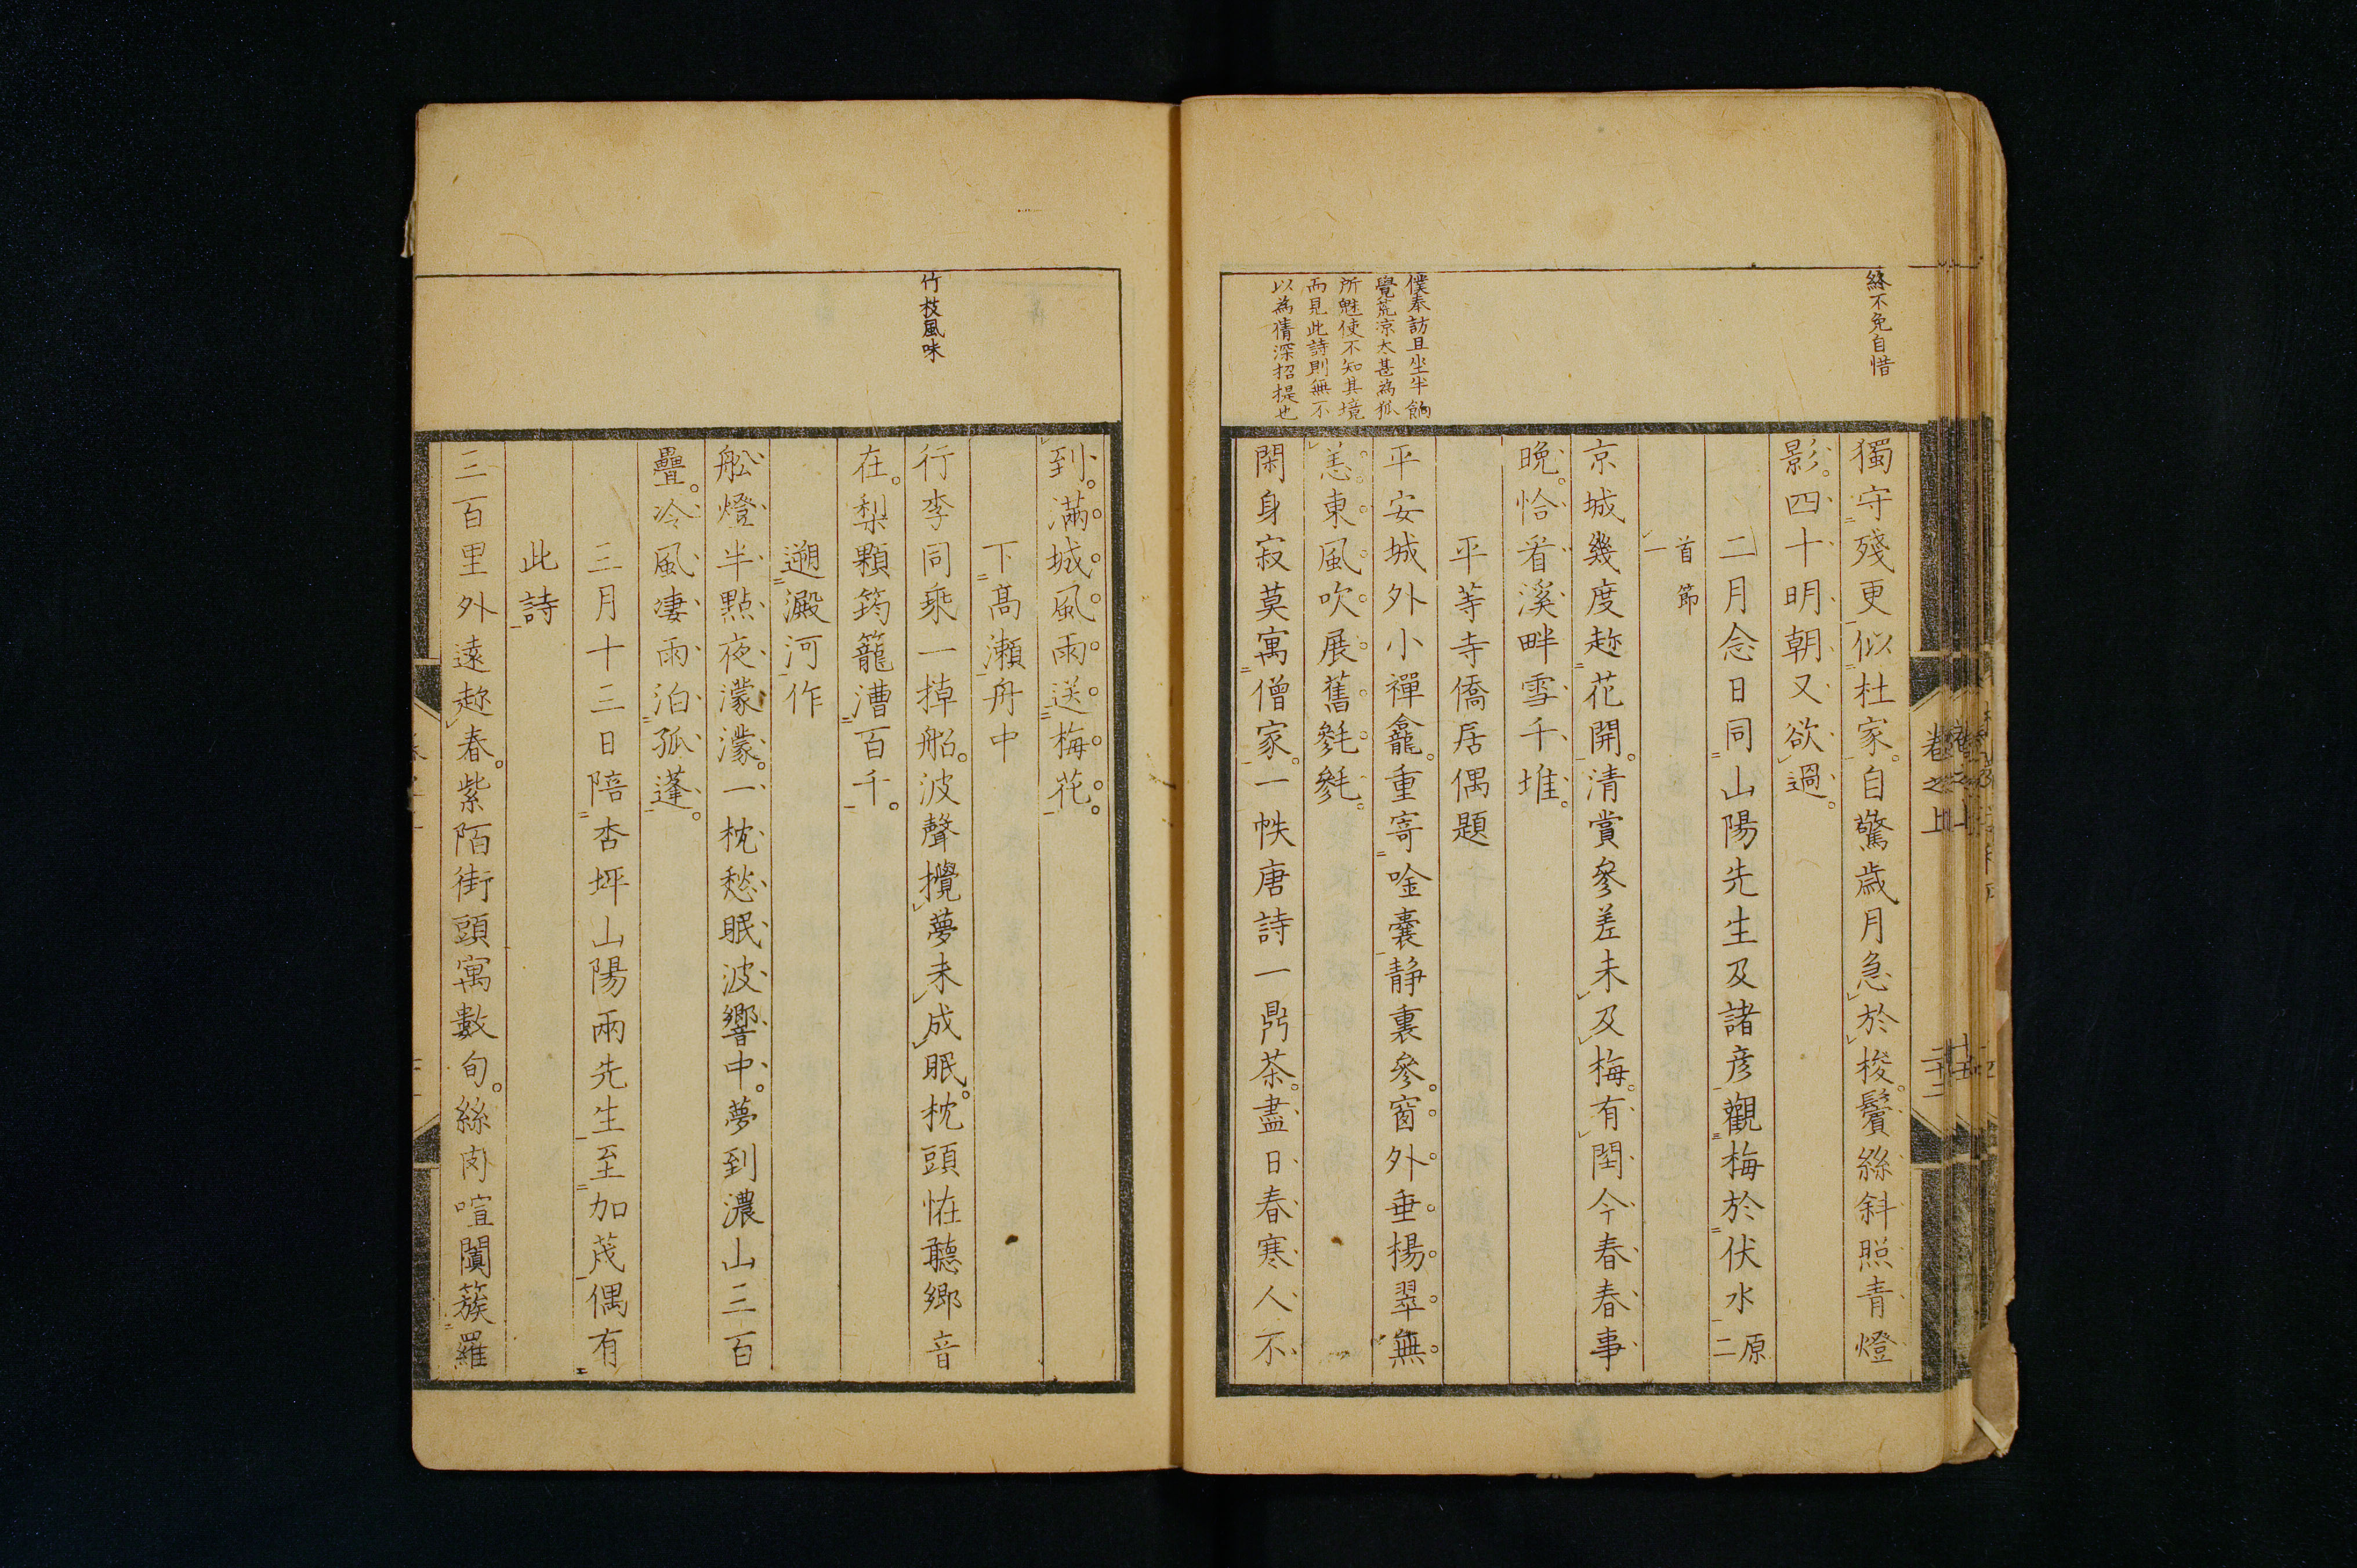 終不免自惜
獨守殘更似杜家。自驚歳月急於梭。鬢絲斜照青燈
影。四十明朝又欲過。
二月念日同山陽先生及諸彦觀梅於伏水原二
首節一
京城幾度趂花開。清賞參差未及梅。有閏今春春事
晩。恰看溪畔雪千堆。
平等寺僑居偶題
僕奉訪且坐半餉
覺荒凉太甚為狐
所魅使不知其境
而見此詩則無不
以為情深招提也
平安城外小禪龕。重寄唫囊静裏參。窗外垂楊翠無
恙。東風吹展舊毿毿。
閑身寂莫寓僧家。一帙唐詩一鼎茶。盡日春寒人不
卷之上
二十二
到。滿城風雨送梅花。
下高瀬舟中
竹枝風味
行李同乘一棹船。波聲攪夢未成眠。枕頭恠聽鄉音
在。梨顆筠籠漕百千。
遡澱河作
舩燈半點夜濛濛。一枕愁眠波響中。夢到濃山三百
疊。冷風凄雨泊孤蓬。
三月十三日陪杏坪山陽兩先生至加茂偶有
此詩
三百里外遠趂春。紫陌街頭寓數旬。絲肉喧闐簇羅